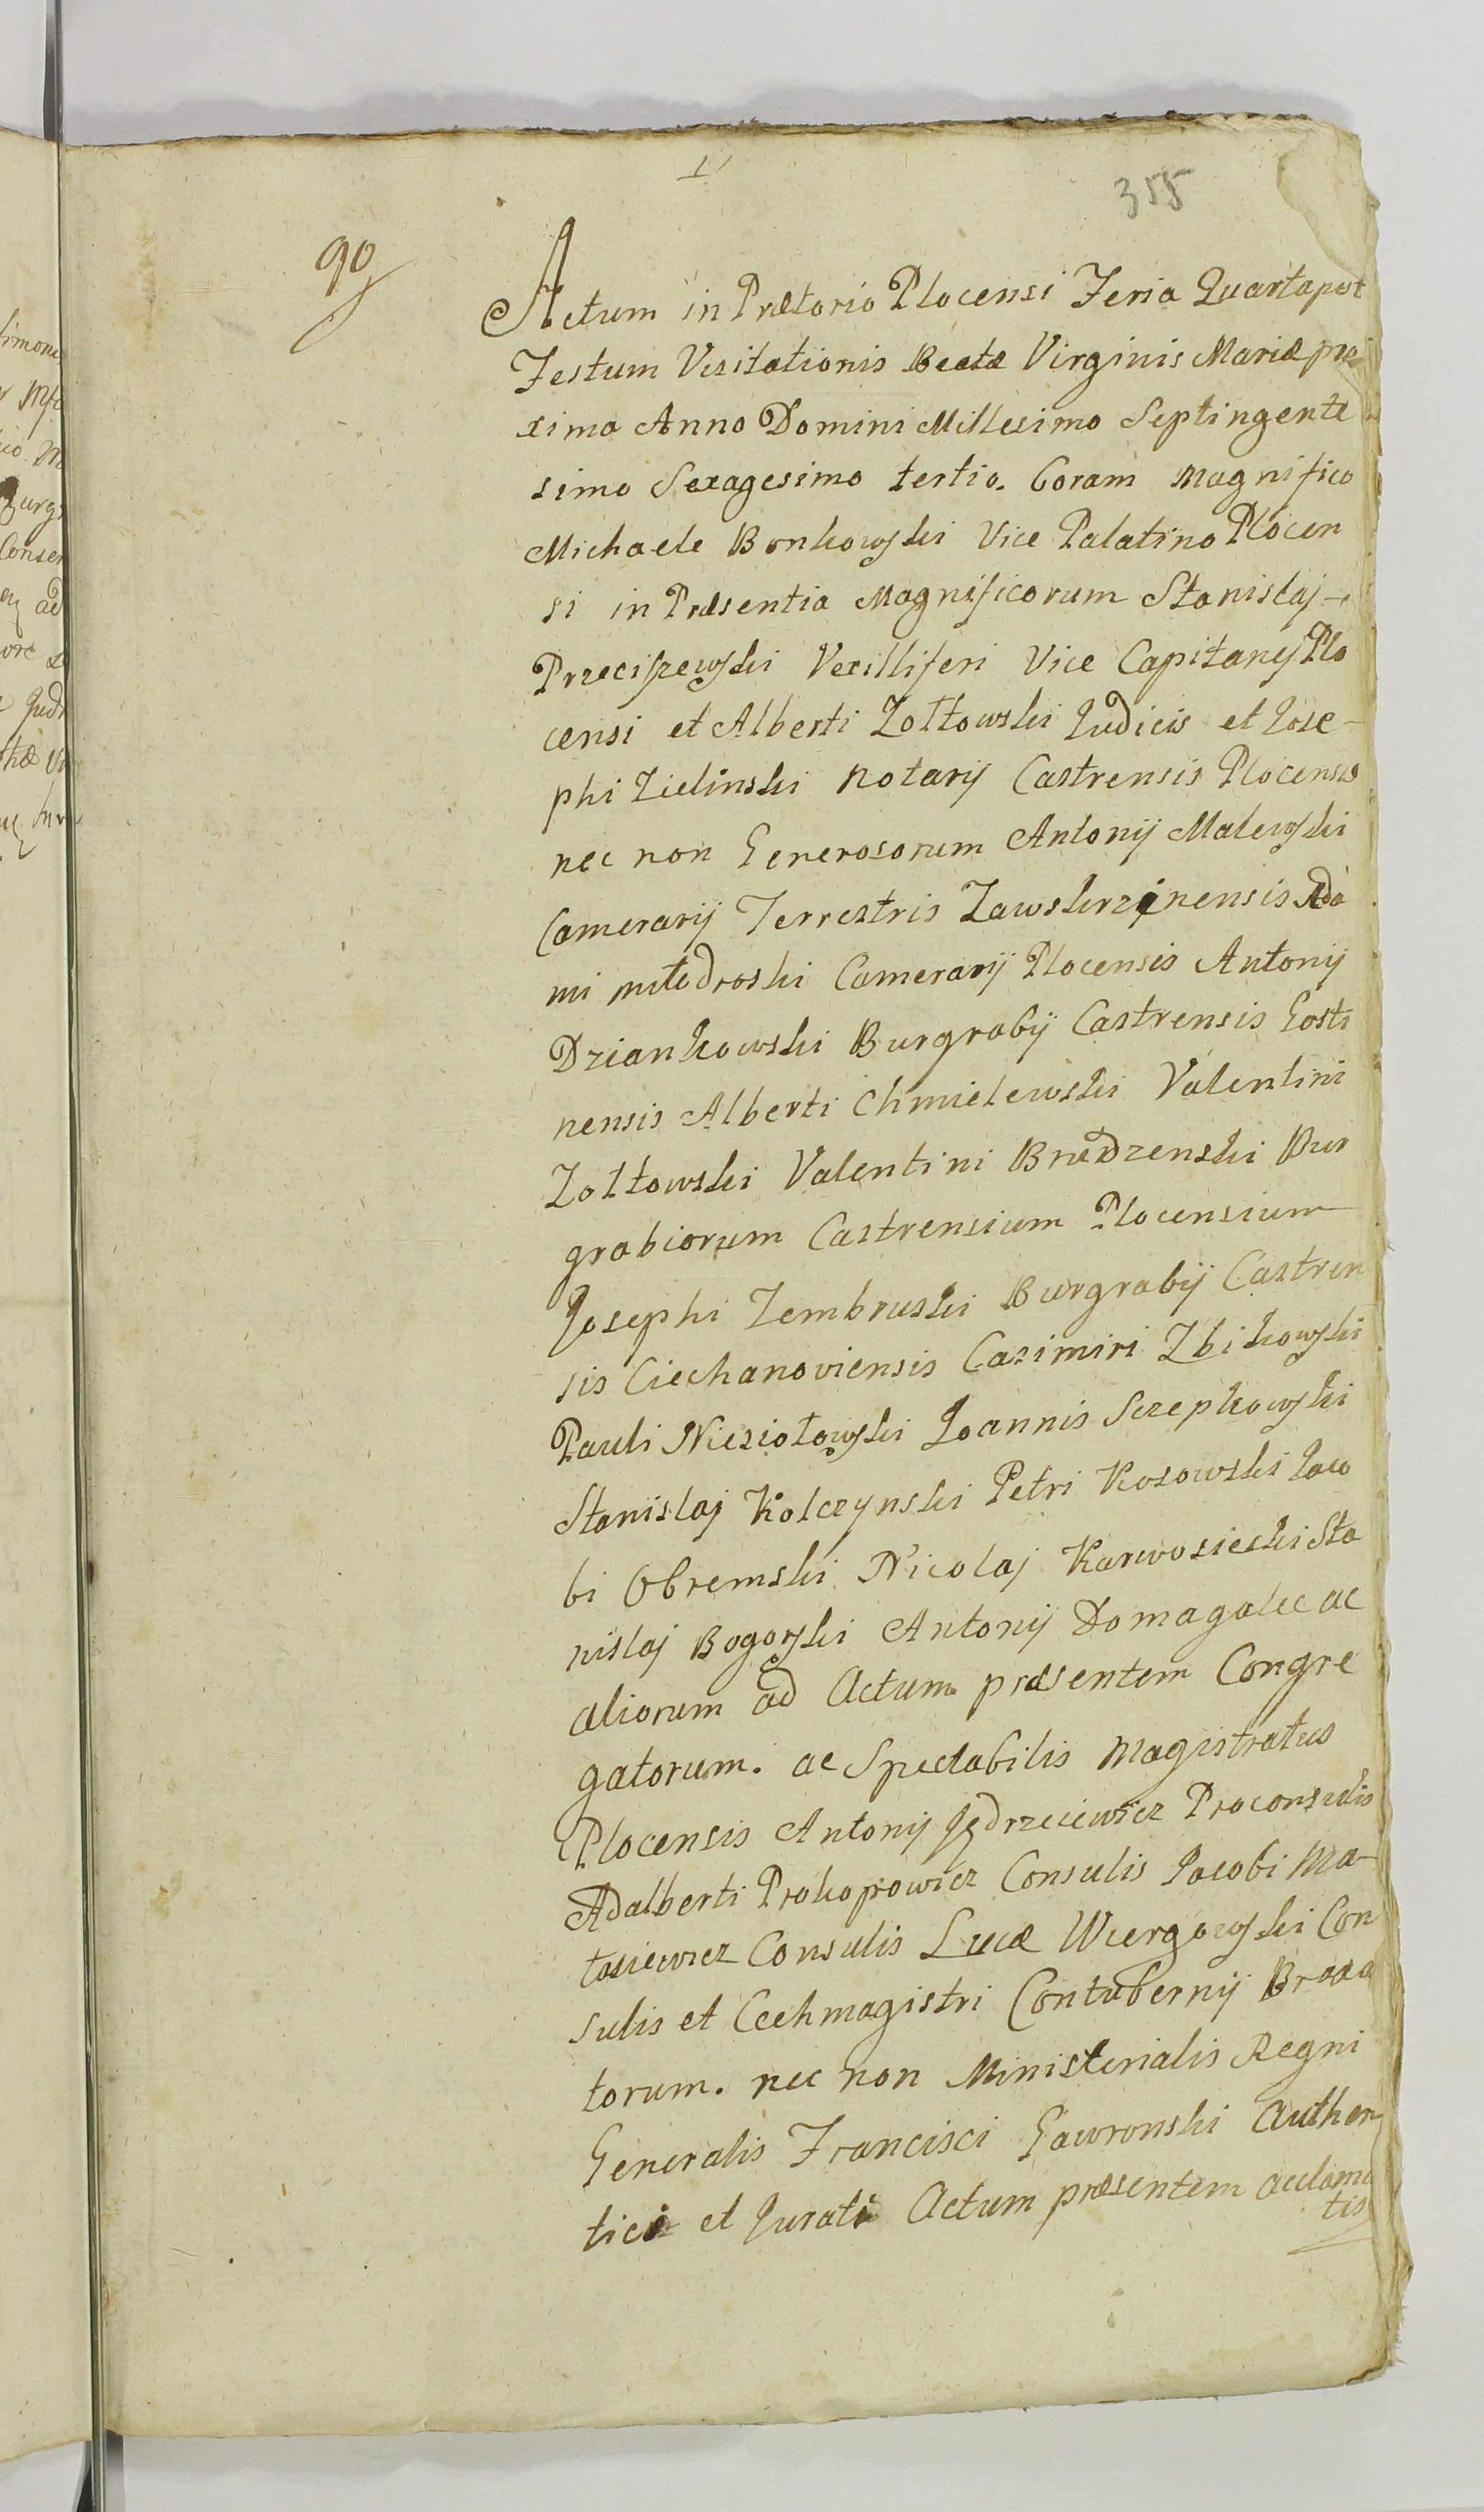 1
355
90
Actum in Prætorio Plocensi Feria Quarta post
Festum Visitationis Beatæ Virginis Mariæ pro
xima Anno Domini Millesimo Septingente
simo Sexagesimo tertio. Coram Magnifico
Michaele Bonkowski Vice Palatino Plocen
si in Præsentia Magnificorum Stanislaj
Przeciszewski Vexilliferi Vice Capitanej Plo
censi et Alberti Zołtowski Judicis et Jose-
phi Zielinski Notarij Castrensis Plocensis
nec non Generosorum Antonij Malewski
Camerarij Terrestris Zawskrzinensis Ada
mi Młodroski Camerarij Plocensis Antonij
Dziankowski Burgrabij Castrensis Gosti
nensis Alberti Chmielewski Valentini
Zołtowski Valentini Brudzenski Bur
grabiorum Castrensium Plocensium
Josephi Zembruski Burgrabij Castren
sis Ciechanoviensis Casimiri Zbikowski
Pauli Niesiołowski Joannis Szepkowski
Stanislaj Kolczynski Petri Kosowski Jaco
bi Obremski Nicolaj Karwosiecki Sta
nislaj Bogorski Antonij Domagalec ac
aliorum ad Actum præsentem Congre
gatorum. ac Spectabilis Magistratus
Plocensis Antonij Jędrzeiewicz Proconsulis
Adalberti Prokopowicz Consulis Jacobi Ma-
tasiewicz Consulis Lucæ Wiergowski Con
sulis et Cechmagistri Contubernij Braxa
torum. nec non Ministerialis Regni
Generalis Francisci Gawronski Authen
tici et Jurati Actum præsentem acclama
tis